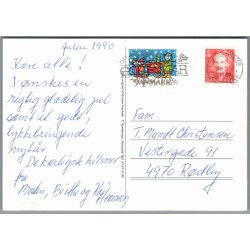 Julen 1990
Kære alle!
I ønskes en
rigtig glædelig jul
samt et godt,
lykkebringende
nytår
De kærligste hilsner
fra
Moster, Birthe og Kaj
DANMARK
Fam.
T. Mundt Christensen
Vestergade 91
4970 Rødby